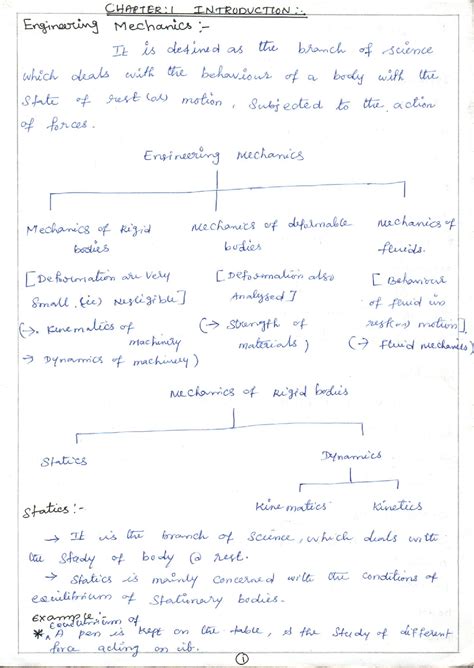 CHAPTER:1 INTRODUCTION:-
Engineering Mechanics:-
It is defined as the branch of science
which deals with the behaviour of a body with the
state of rest (or) motion, subjected to the action
of forces.
Engineering Mechanics
Mechanics of Rigid bodies
Mechanics of deformable bodies
Mechanics of fluids.
[Deformation are very small, (ie) Negligible]
[Deformation also Analysed]
[Behaviour of fluid in rest(or) motion]
(→ Kinematics of machinery
→ Dynamics of machinery)
(→ Strength of materials)
(→ Fluid Mechanics)
Mechanics of Rigid bodies
Statics
Dynamics
Kinematics
Kinetics
Statics:-
→ It is the branch of science, which deals with
the study of body @ rest.
→ Statics is mainly concerned with the conditions of
equilibrium of stationary bodies.
Example:-
* Equilibrium of A pen is kept on the table, & the study of different
force acting on it.
1